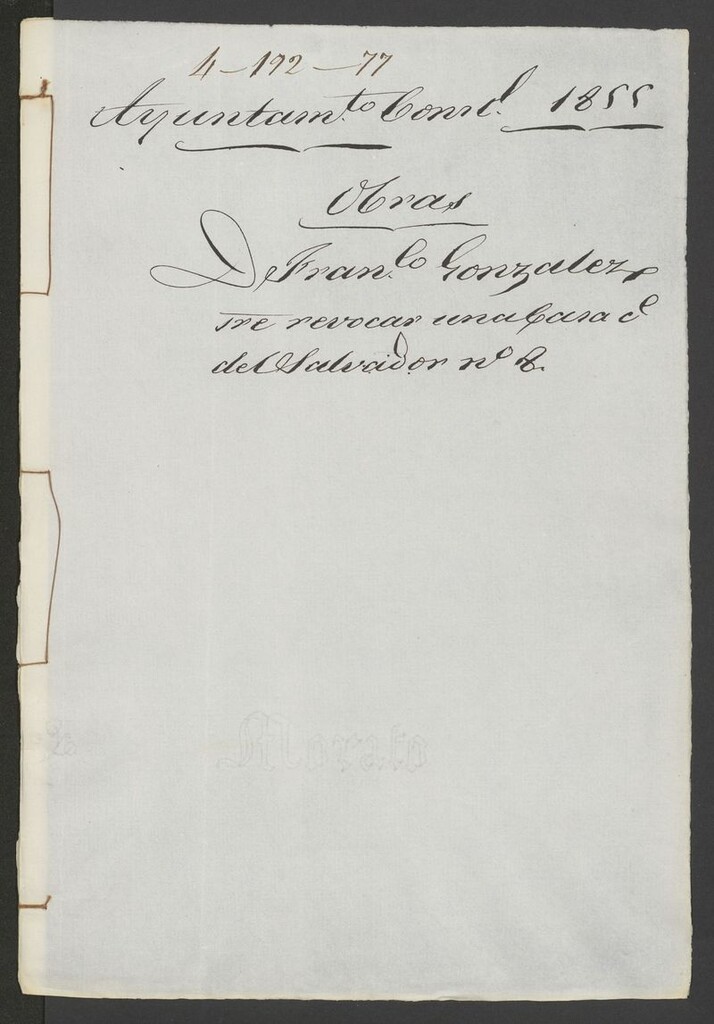 4-192-77
Ayuntam.to Const.l 1855
Obras
Dn Fran.co Gonzalez
sre revocar una Casa C.e
del Salvador nº 8.
Morato